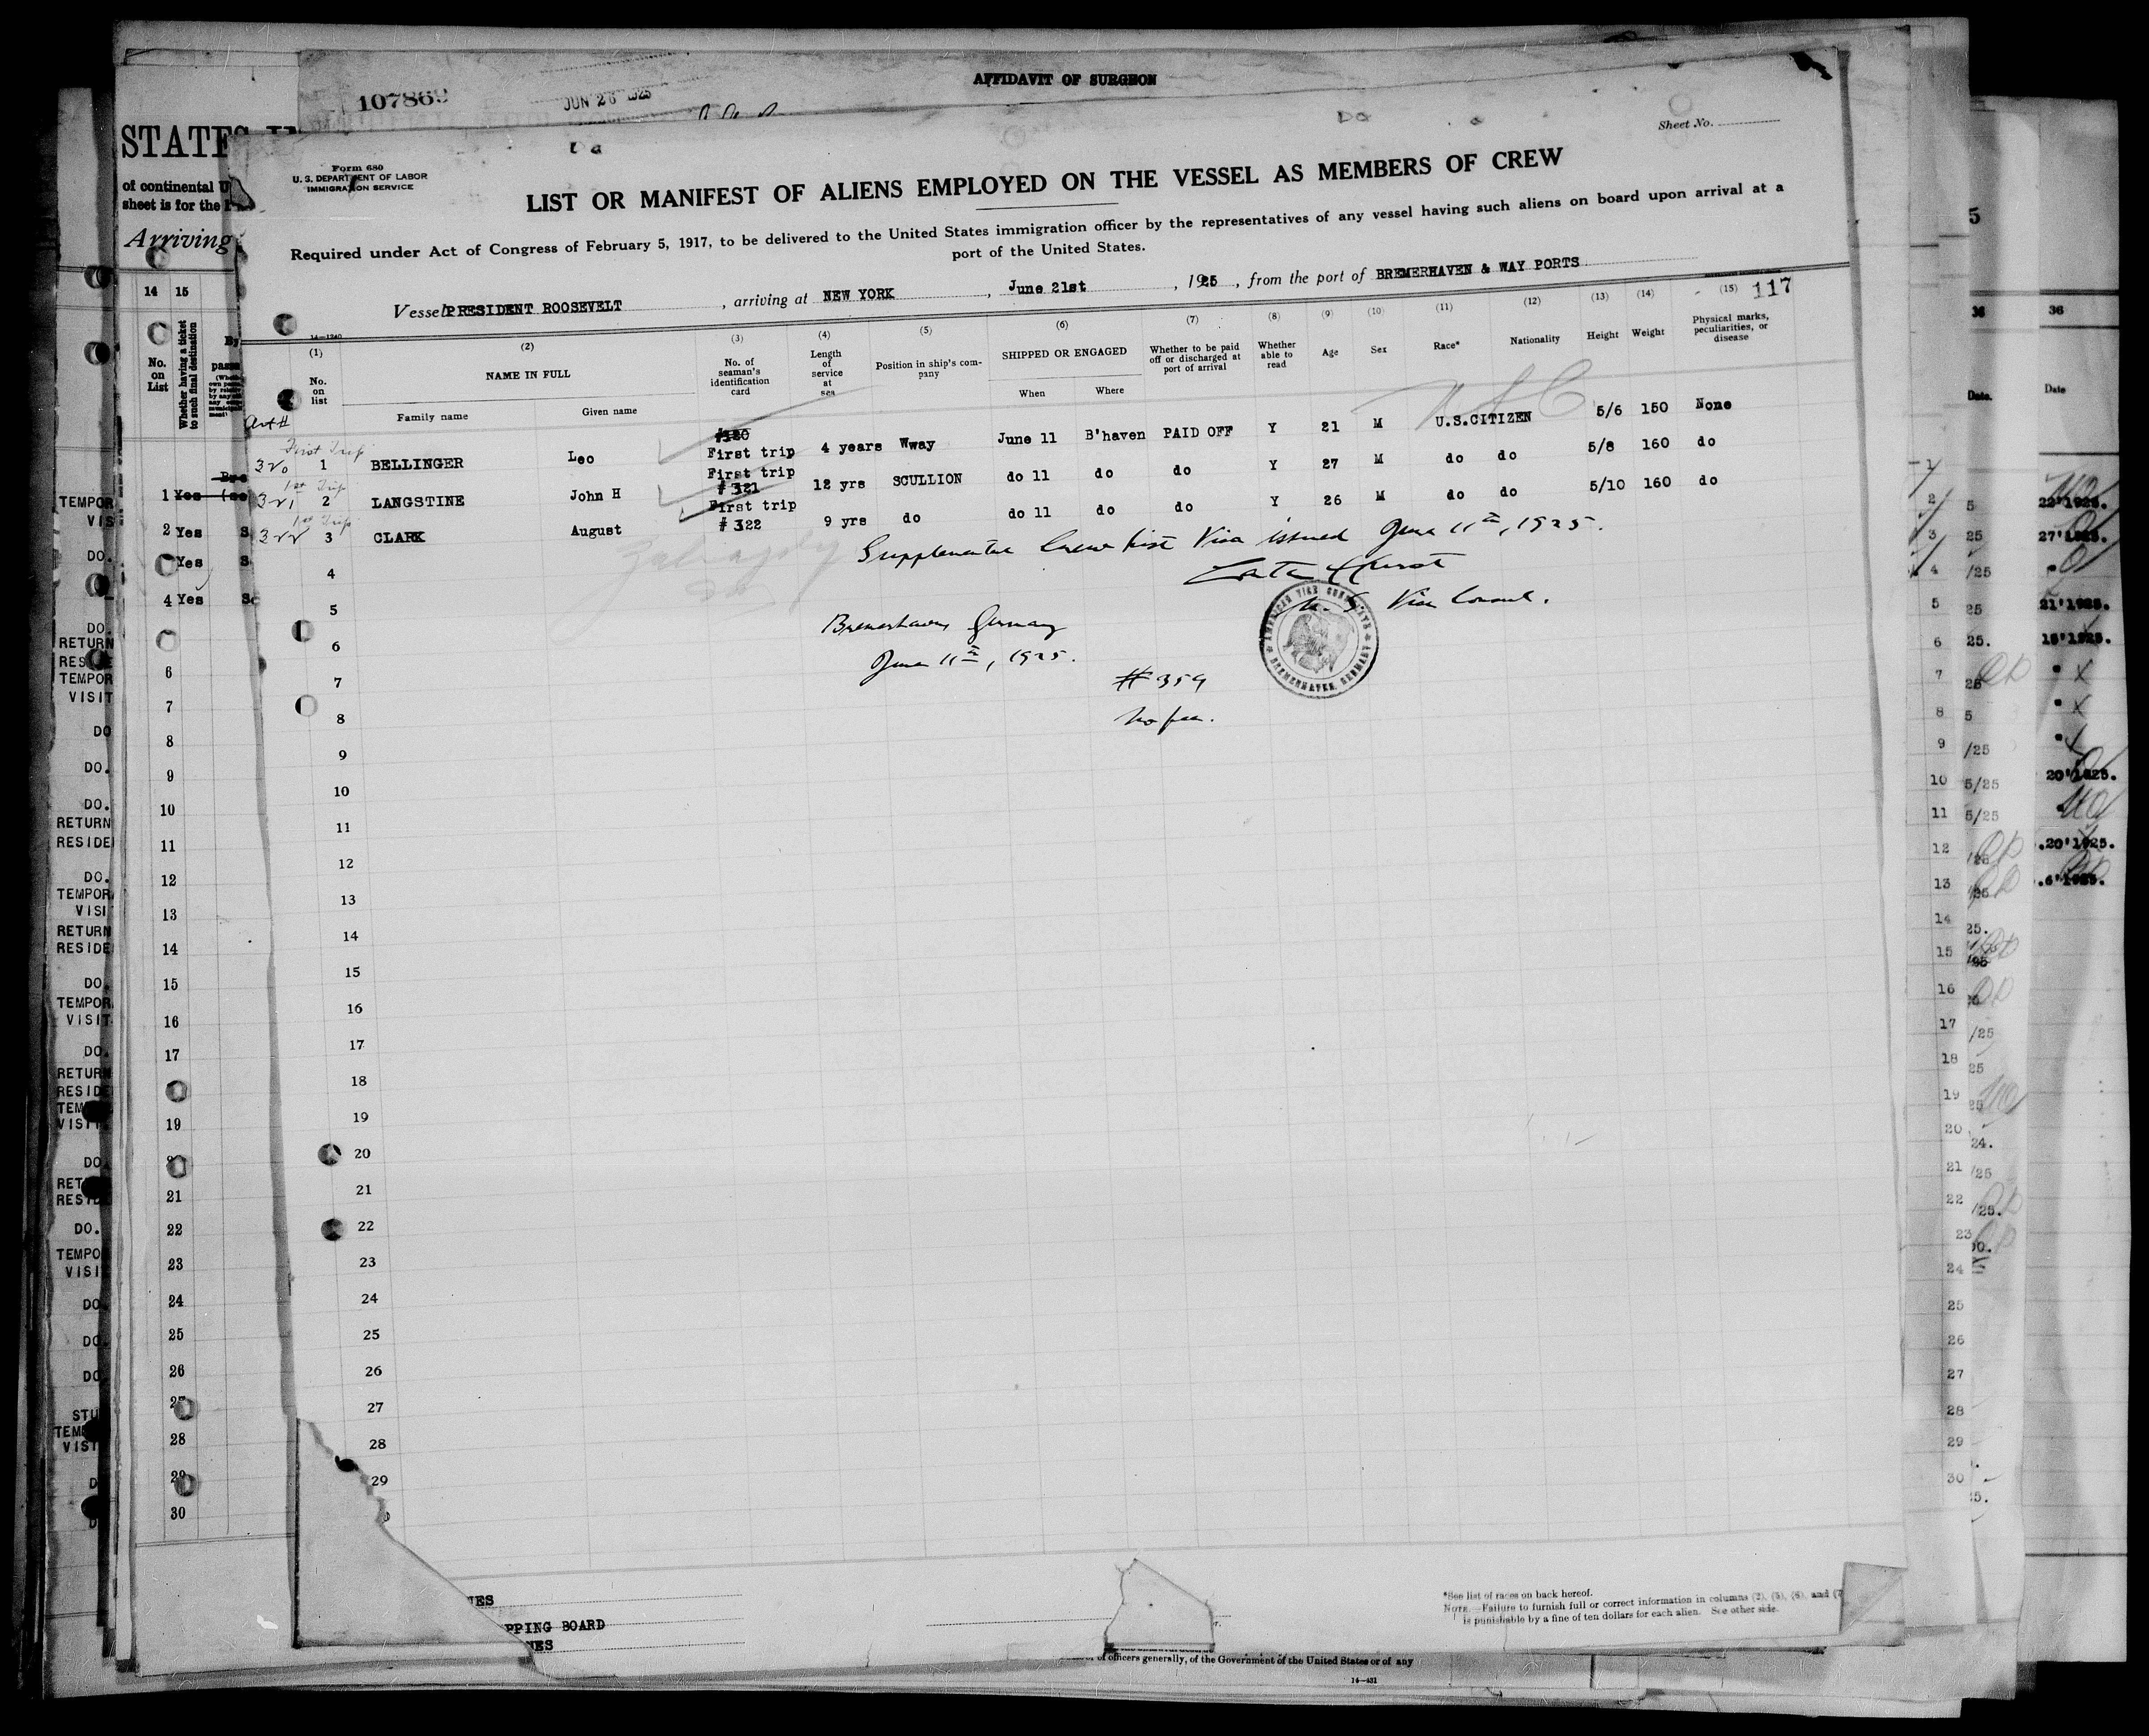 AFFIDAVIT OF SURGEON
107869
JUN 26 1925
Sheet No.
Form 680
U. S. DEPARTMENT OF LABOR
IMMIGRATION SERVICE
LIST OR MANIFEST OF ALIENS EMPLOYED ON THE VESSEL AS MEMBERS OF CREW
Required under Act of Congress of February 5, 1917, to be delivered to the United States immigration officer by the representatives of any vessel having such aliens on board upon arrival at a
port of the United States.
Vessel PRESIDENT ROOSEVELT , arriving at NEW YORK , June 21st , 1925 , from the port of BREMERHAVEN & WAY PORTS
117
14—1240
(1) (2) (3) (4) (5) (6) (7) (8) (9) (10) (11) (12) (13) (14) (15)
No. on list
NAME IN FULL
Family name Given name
No. of seaman's identification card
Length of service at sea
Position in ship's company
SHIPPED OR ENGAGED
When Where
Whether to be paid off or discharged at port of arrival
Whether able to read
Age
Sex
Race*
Nationality
Height
Weight
Physical marks, peculiarities, or disease
U S C
First Trip
320 1 BELLINGER Leo #320 First trip 4 years Wway June 11 B'haven PAID OFF Y 21 M U.S.CITIZEN 5/6 150 None
1st Trip
321 2 LANGSTINE John H First trip #321 12 yrs SCULLION do 11 do do Y 27 M do do 5/8 160 do
1st Trip
322 3 CLARK August First trip #322 9 yrs do do 11 do do Y 26 M do do 5/10 160 do
Supplemental Crew List Visa issued June 11th, 1925.
U. S. Vice Consul.
AMERICAN VICE CONSULATE
BREMERHAVEN, GERMANY
Bremerhaven, Germany
June 11th, 1925.
#359
No fee.
4
5
6
7
8
9
10
11
12
13
14
15
16
17
18
19
20
21
22
23
24
25
26
27
28
29
PPING BOARD
*See list of races on back hereof.
NOTE.—Failure to furnish full or correct information in columns (2), (5), (6), and (7
is punishable by a fine of ten dollars for each alien. See other side.
of officers generally, of the Government of the United States or of any
14—431
STATES
of continental U
sheet is for the
Arriving
14 15
No. on List
Whether having a ticket to such final destination
By
1 Yes
2 Yes
Yes
4 Yes
6
7
8
9
10
11
12
13
14
15
16
17
19
21
22
23
24
25
26
27
28
29
30
TEMPOR
VIS
DO.
DO.
RETURN
TEMPOR
VISIT
DO
DO.
DO.
RETURN
RESIDE
DO.
TEMPOR
VISI
RETURN
RESIDE
DO.
TEMPOR
VISIT
DO.
RETURN
RESIDE
VISIT
DO.
DO.
TEMPO
VISI
DO.
DO.
DO.
STU
VISIT
36 36
Date. Date
22'1925.
27'1925.
21'1925.
18'1925.
20'1925.
.20'1925.
.6'1925.